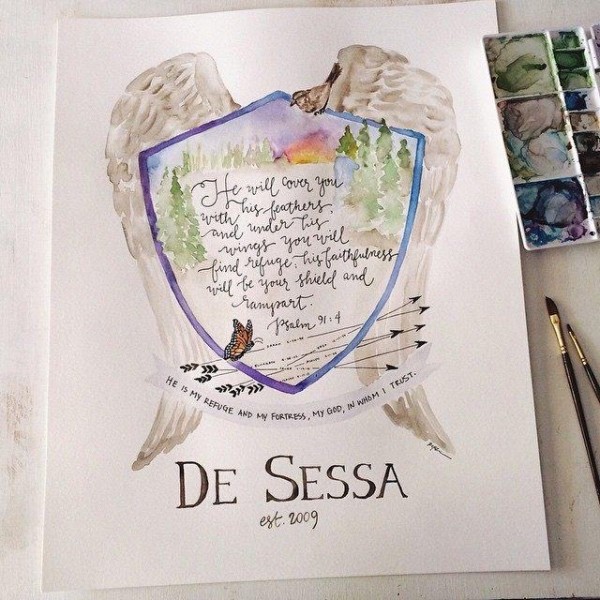 He will cover you
with his feathers,
and under his
wings you will
find refuge; his faithfulness
will be your shield and
rampart.
Psalm 91:4
HE IS MY REFUGE AND MY FORTRESS, MY GOD, IN WHOM I TRUST.
DE SESSA
est. 2009